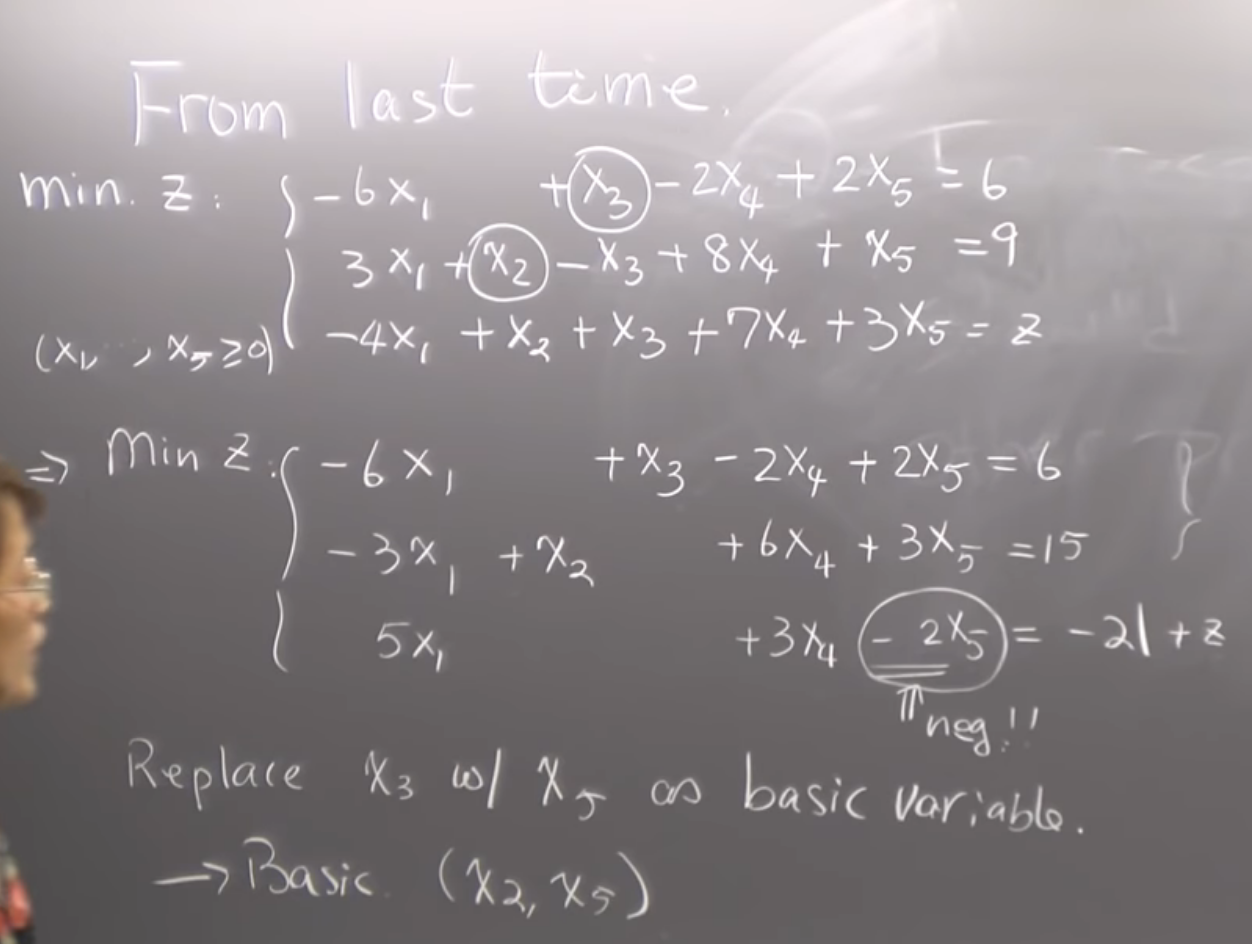 From last time.
min. z: -6x₁ +x₃ -2x₄ + 2x₅ = 6
3x₁ + x₂ - x₃ + 8x₄ + x₅ = 9
(x₁, ..., x₅ ≥ 0) -4x₁ + x₂ + x₃ + 7x₄ + 3x₅ = z
⇒ Min z: -6x₁ + x₃ - 2x₄ + 2x₅ = 6
-3x₁ + x₂ + 6x₄ + 3x₅ = 15
5x₁ + 3x₄ - 2x₅ = -21 + z
⇑ neg!!
Replace x₃ w/ x₅ as basic variable.
→ Basic. (x₂, x₅)